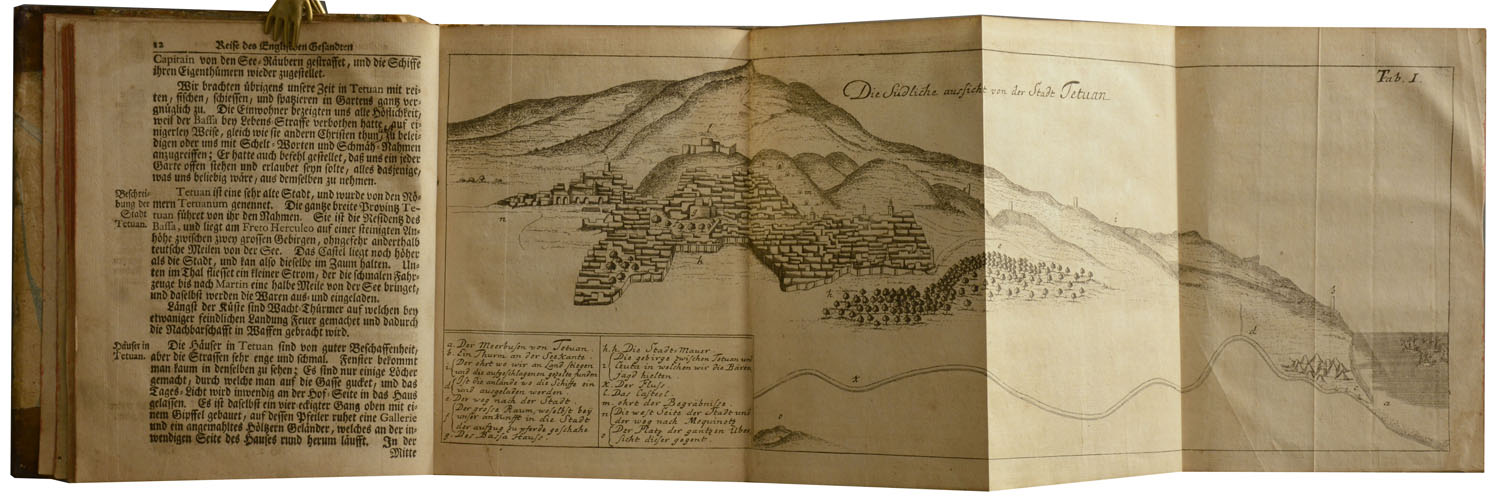 12 Reise des Englischen Gesandten
Capitain von den See-Räubern gestraffet, und die Schiffe
ihren Eigenthümern wieder zugestellet.
Wir brachten übrigens unsere Zeit in Tetuan mit rei-
ten, fischen, schiessen, und spatzieren in Gartens gantz ver-
gnüglich zu. Die Einwohner bezeigten uns alle Höflichkeit,
weil der Bassa bey Lebens-Straffe verbothen hatte, auf ei-
nigerley Weise, gleich wie sie andern Christen thun, zu belei-
digen oder uns mit Schelt-Worten und Schmäh-Nahmen
anzugreiffen; Er hatte auch befehl gestellet, daß uns ein jeder
Garte offen stehen und erlaubet seyn solte, alles dasjenige,
was uns beliebig wäre, aus demselben zu nehmen.
Beschrei-
bung der
Stadt
Tetuan.
Tetuan ist eine sehr alte Stadt, und wurde von den Rö-
mern Tetuanum genennet. Die gantze breite Provintz Te-
tuan führet von ihr den Nahmen. Sie ist die Residentz des
Bassa, und liegt am Freto Herculeo auf einer steinigten An-
höhe zwischen zwey grossen Gebirgen, ohngefehr anderthalb
teutsche Meilen von der See. Das Castel liegt noch höher
als die Stadt, und kan also dieselbe im Zaum halten. Un-
ten im Thal fliesset ein kleiner Strom, der die schmalen Fahr-
zeuge bis nach Martin eine halbe Meile von der See bringet,
und daselbst werden die Waren aus- und eingeladen.
Längst der Küste sind Wacht-Thürmer auf welchen bey
etwaniger feindlichen Landung Feuer gemachet und dadurch
die Nachbarschafft in Waffen gebracht wird.
Häuser in
Tetuan.
Die Häuser in Tetuan sind von guter Beschaffenheit,
aber die Strassen sehr enge und schmal. Fenster bekommt
man kaum in denselben zu sehen; Es sind nur einige Löcher
gemacht, durch welche man auf die Gasse gucket, und das
Tages-Licht wird inwendig an der Hof-Seite in das Haus
gelassen. Es ist daselbst ein vier-eckigter Gang oben mit ei-
nem Gipffel gebauet, auf dessen Pfeiler ruhet eine Gallerie
und ein angemahltes Höltzern Geländer, welches an der in-
wendigen Seite des Hauses rund herum läufft. In der
Mitte
Tab. I.
Die Südliche aussicht von der Stadt Tetuan
a. Der Meerbusen von Tetuan
b. Ein Thurm an der Seekante.
Der ohrt wo wir an Land stiegen
und die aufgeschlagenen gezelte funden
d Ist die anlände wo die Schiffe ein
und ausgeladen werden
e. Der weg nach der Stadt.
f Der grosse Raum, woselbst beÿ
unser ankunfft in die Stadt
der aufzug zu pferde geschahe
g. Des Bassa Hauss.
h.h. Die Stadt-Mauer
i Die gebirge zwischen Tetuan und
Ceuta in welchen wir die Bären
jagd hielten
k Der Fluss
l. Das Castel.
m. ohrt der Begräbnisse.
n Die west Seite der Stadt und
der weg nach Mequinetz
o Der Platz der gantzen Uber
sicht diser gegent.